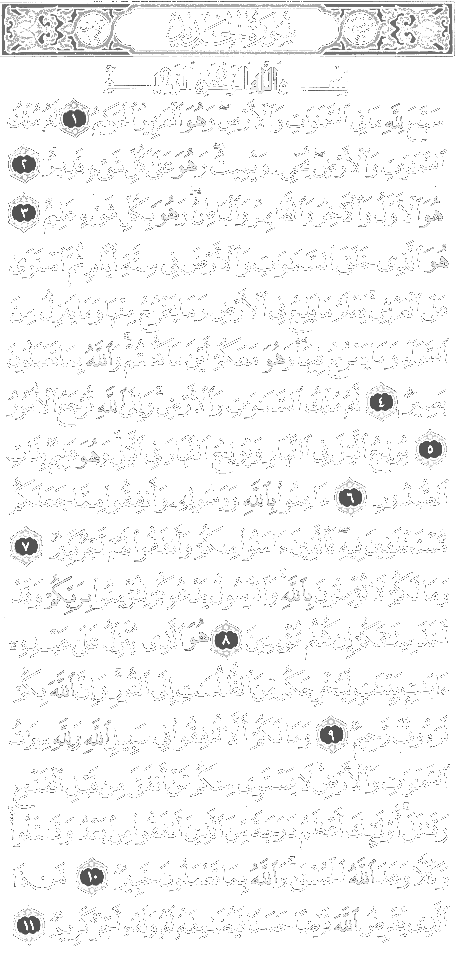 سُورَةُ الْحَدِيدِ
بِسْمِ اللَّهِ الرَّحْمَٰنِ الرَّحِيمِ
سَبَّحَ لِلَّهِ مَا فِي السَّمَٰوَٰتِ وَالْأَرْضِ وَهُوَ الْعَزِيزُ الْحَكِيمُ ١ لَهُ مُلْكُ
السَّمَٰوَٰتِ وَالْأَرْضِ يُحْيِي وَيُمِيتُ وَهُوَ عَلَىٰ كُلِّ شَيْءٍ قَدِيرٌ ٢
هُوَ الْأَوَّلُ وَالْآخِرُ وَالظَّاهِرُ وَالْبَاطِنُ وَهُوَ بِكُلِّ شَيْءٍ عَلِيمٌ ٣
هُوَ الَّذِي خَلَقَ السَّمَٰوَٰتِ وَالْأَرْضَ فِي سِتَّةِ أَيَّامٍ ثُمَّ اسْتَوَىٰ
عَلَى الْعَرْشِ يَعْلَمُ مَا يَلِجُ فِي الْأَرْضِ وَمَا يَخْرُجُ مِنْهَا وَمَا يَنزِلُ مِنَ
السَّمَاءِ وَمَا يَعْرُجُ فِيهَا وَهُوَ مَعَكُمْ أَيْنَ مَا كُنتُمْ وَاللَّهُ بِمَا تَعْمَلُونَ
بَصِيرٌ ٤ لَهُ مُلْكُ السَّمَٰوَٰتِ وَالْأَرْضِ وَإِلَى اللَّهِ تُرْجَعُ الْأُمُورُ
٥ يُولِجُ اللَّيْلَ فِي النَّهَارِ وَيُولِجُ النَّهَارَ فِي اللَّيْلِ وَهُوَ عَلِيمٌ بِذَاتِ
الصُّدُورِ ٦ ءَامِنُوا بِاللَّهِ وَرَسُولِهِ وَأَنفِقُوا مِمَّا جَعَلَكُم
مُّسْتَخْلَفِينَ فِيهِ فَالَّذِينَ ءَامَنُوا مِنكُمْ وَأَنفَقُوا لَهُمْ أَجْرٌ كَبِيرٌ ٧
وَمَا لَكُمْ لَا تُؤْمِنُونَ بِاللَّهِ وَالرَّسُولُ يَدْعُوكُمْ لِتُؤْمِنُوا بِرَبِّكُمْ وَقَدْ
أَخَذَ مِيثَٰقَكُمْ إِن كُنتُم مُّؤْمِنِينَ ٨ هُوَ الَّذِي يُنَزِّلُ عَلَىٰ عَبْدِهِ
ءَايَٰتٍ بَيِّنَٰتٍ لِّيُخْرِجَكُم مِّنَ الظُّلُمَٰتِ إِلَى النُّورِ وَإِنَّ اللَّهَ بِكُمْ
لَرَءُوفٌ رَّحِيمٌ ٩ وَمَا لَكُمْ أَلَّا تُنفِقُوا فِي سَبِيلِ اللَّهِ وَلِلَّهِ مِيرَٰثُ
السَّمَٰوَٰتِ وَالْأَرْضِ لَا يَسْتَوِي مِنكُم مَّنْ أَنفَقَ مِن قَبْلِ الْفَتْحِ
وَقَٰتَلَ أُولَٰئِكَ أَعْظَمُ دَرَجَةً مِّنَ الَّذِينَ أَنفَقُوا مِن بَعْدُ وَقَٰتَلُوا
وَكُلًّا وَعَدَ اللَّهُ الْحُسْنَىٰ وَاللَّهُ بِمَا تَعْمَلُونَ خَبِيرٌ ١٠ مَّن ذَا
الَّذِي يُقْرِضُ اللَّهَ قَرْضًا حَسَنًا فَيُضَٰعِفَهُ لَهُ وَلَهُ أَجْرٌ كَرِيمٌ ١١